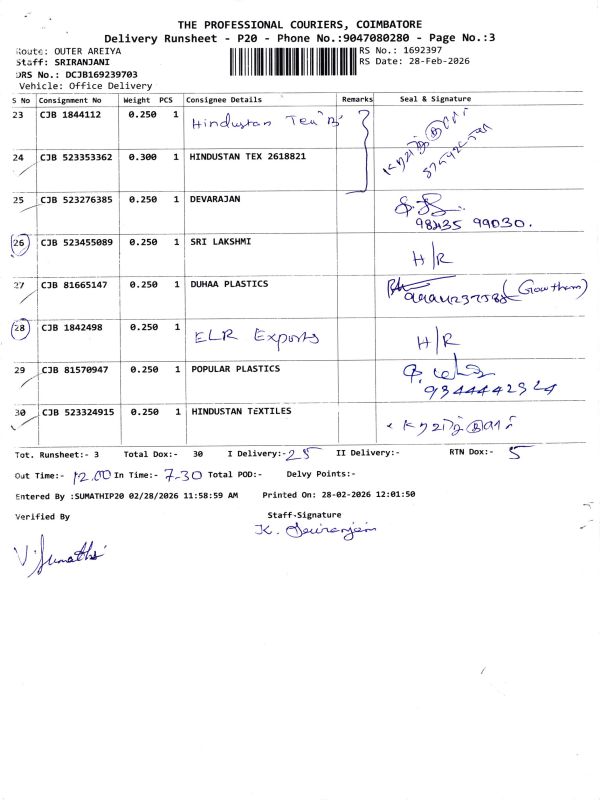 THE PROFESSIONAL COURIERS, COIMBATORE
Delivery Runsheet - P20 - Phone No.:9047080280 - Page No.:3
Route: OUTER AREIYA
RS No.: 1692397
Staff: SRIRANJANI
RS Date: 28-Feb-2026
DRS No.: DCJB169239703
Vehicle: Office Delivery
S No Consignment No Weight PCS Consignee Details Remarks Seal & Signature
23 CJB 1844112 0.250 1 Hindustan
24 CJB 523353362 0.300 1 HINDUSTAN TEX 2618821
25 CJB 523276385 0.250 1 DEVARAJAN
98435 99030.
26 CJB 523455089 0.250 1 SRI LAKSHMI H/R
27 CJB 81665147 0.250 1 DUHAA PLASTICS (Gowtham)
28 CJB 1842498 0.250 1 ELR Exports H/R
29 CJB 81570947 0.250 1 POPULAR PLASTICS
9344442324
30 CJB 523324915 0.250 1 HINDUSTAN TEXTILES
Tot. Runsheet:- 3 Total Dox:- 30 I Delivery:- 25 II Delivery:- RTN Dox:- 5
Out Time:- 12.00 In Time:- 7-30 Total POD:- Delvy Points:-
Entered By :SUMATHIP20 02/28/2026 11:58:59 AM Printed On: 28-02-2026 12:01:50
Verified By Staff-Signature
K. Sriranjani
V. Sumathi